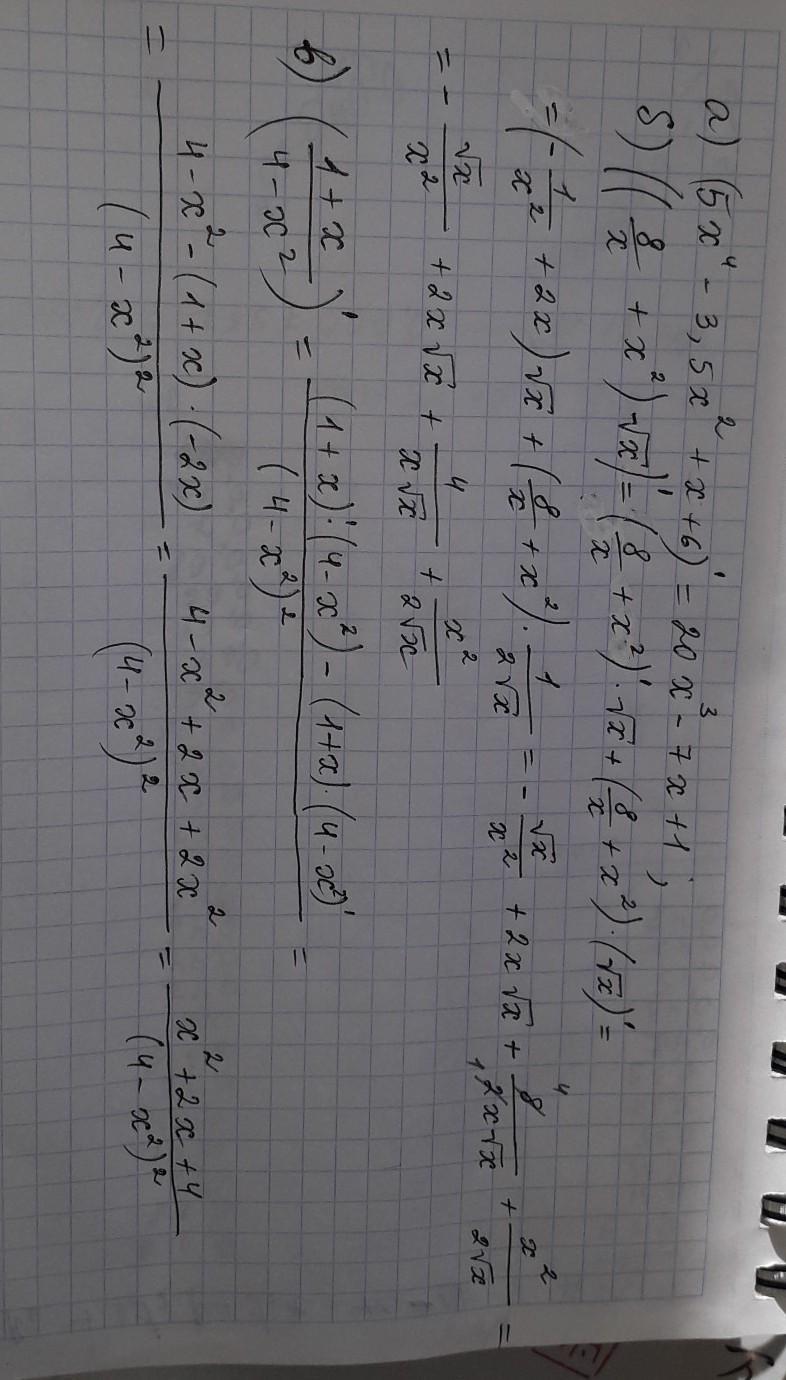 а) (5x⁴ - 3,5x² + x + 6)' = 20x³ - 7x + 1 ;
б) ((8/x + x²)√x)' = (8/x + x²)' · √x + (8/x + x²) · (√x)' =
= (- 1/x² + 2x)√x + (8/x + x²) · 1/(2√x) = - √x/x² + 2x√x + 8⁴/(₁2x√x) + x²/(2√x) =
= - √x/x² + 2x√x + 4/(x√x) + x²/(2√x)
в) ((1 + x)/(4 - x²))' = ((1 + x)' · (4 - x²) - (1 + x) · (4 - x²)')/(4 - x²)² =
= (4 - x² - (1 + x) · (-2x))/(4 - x²)² = (4 - x² + 2x + 2x²)/(4 - x²)² = (x² + 2x + 4)/(4 - x²)²